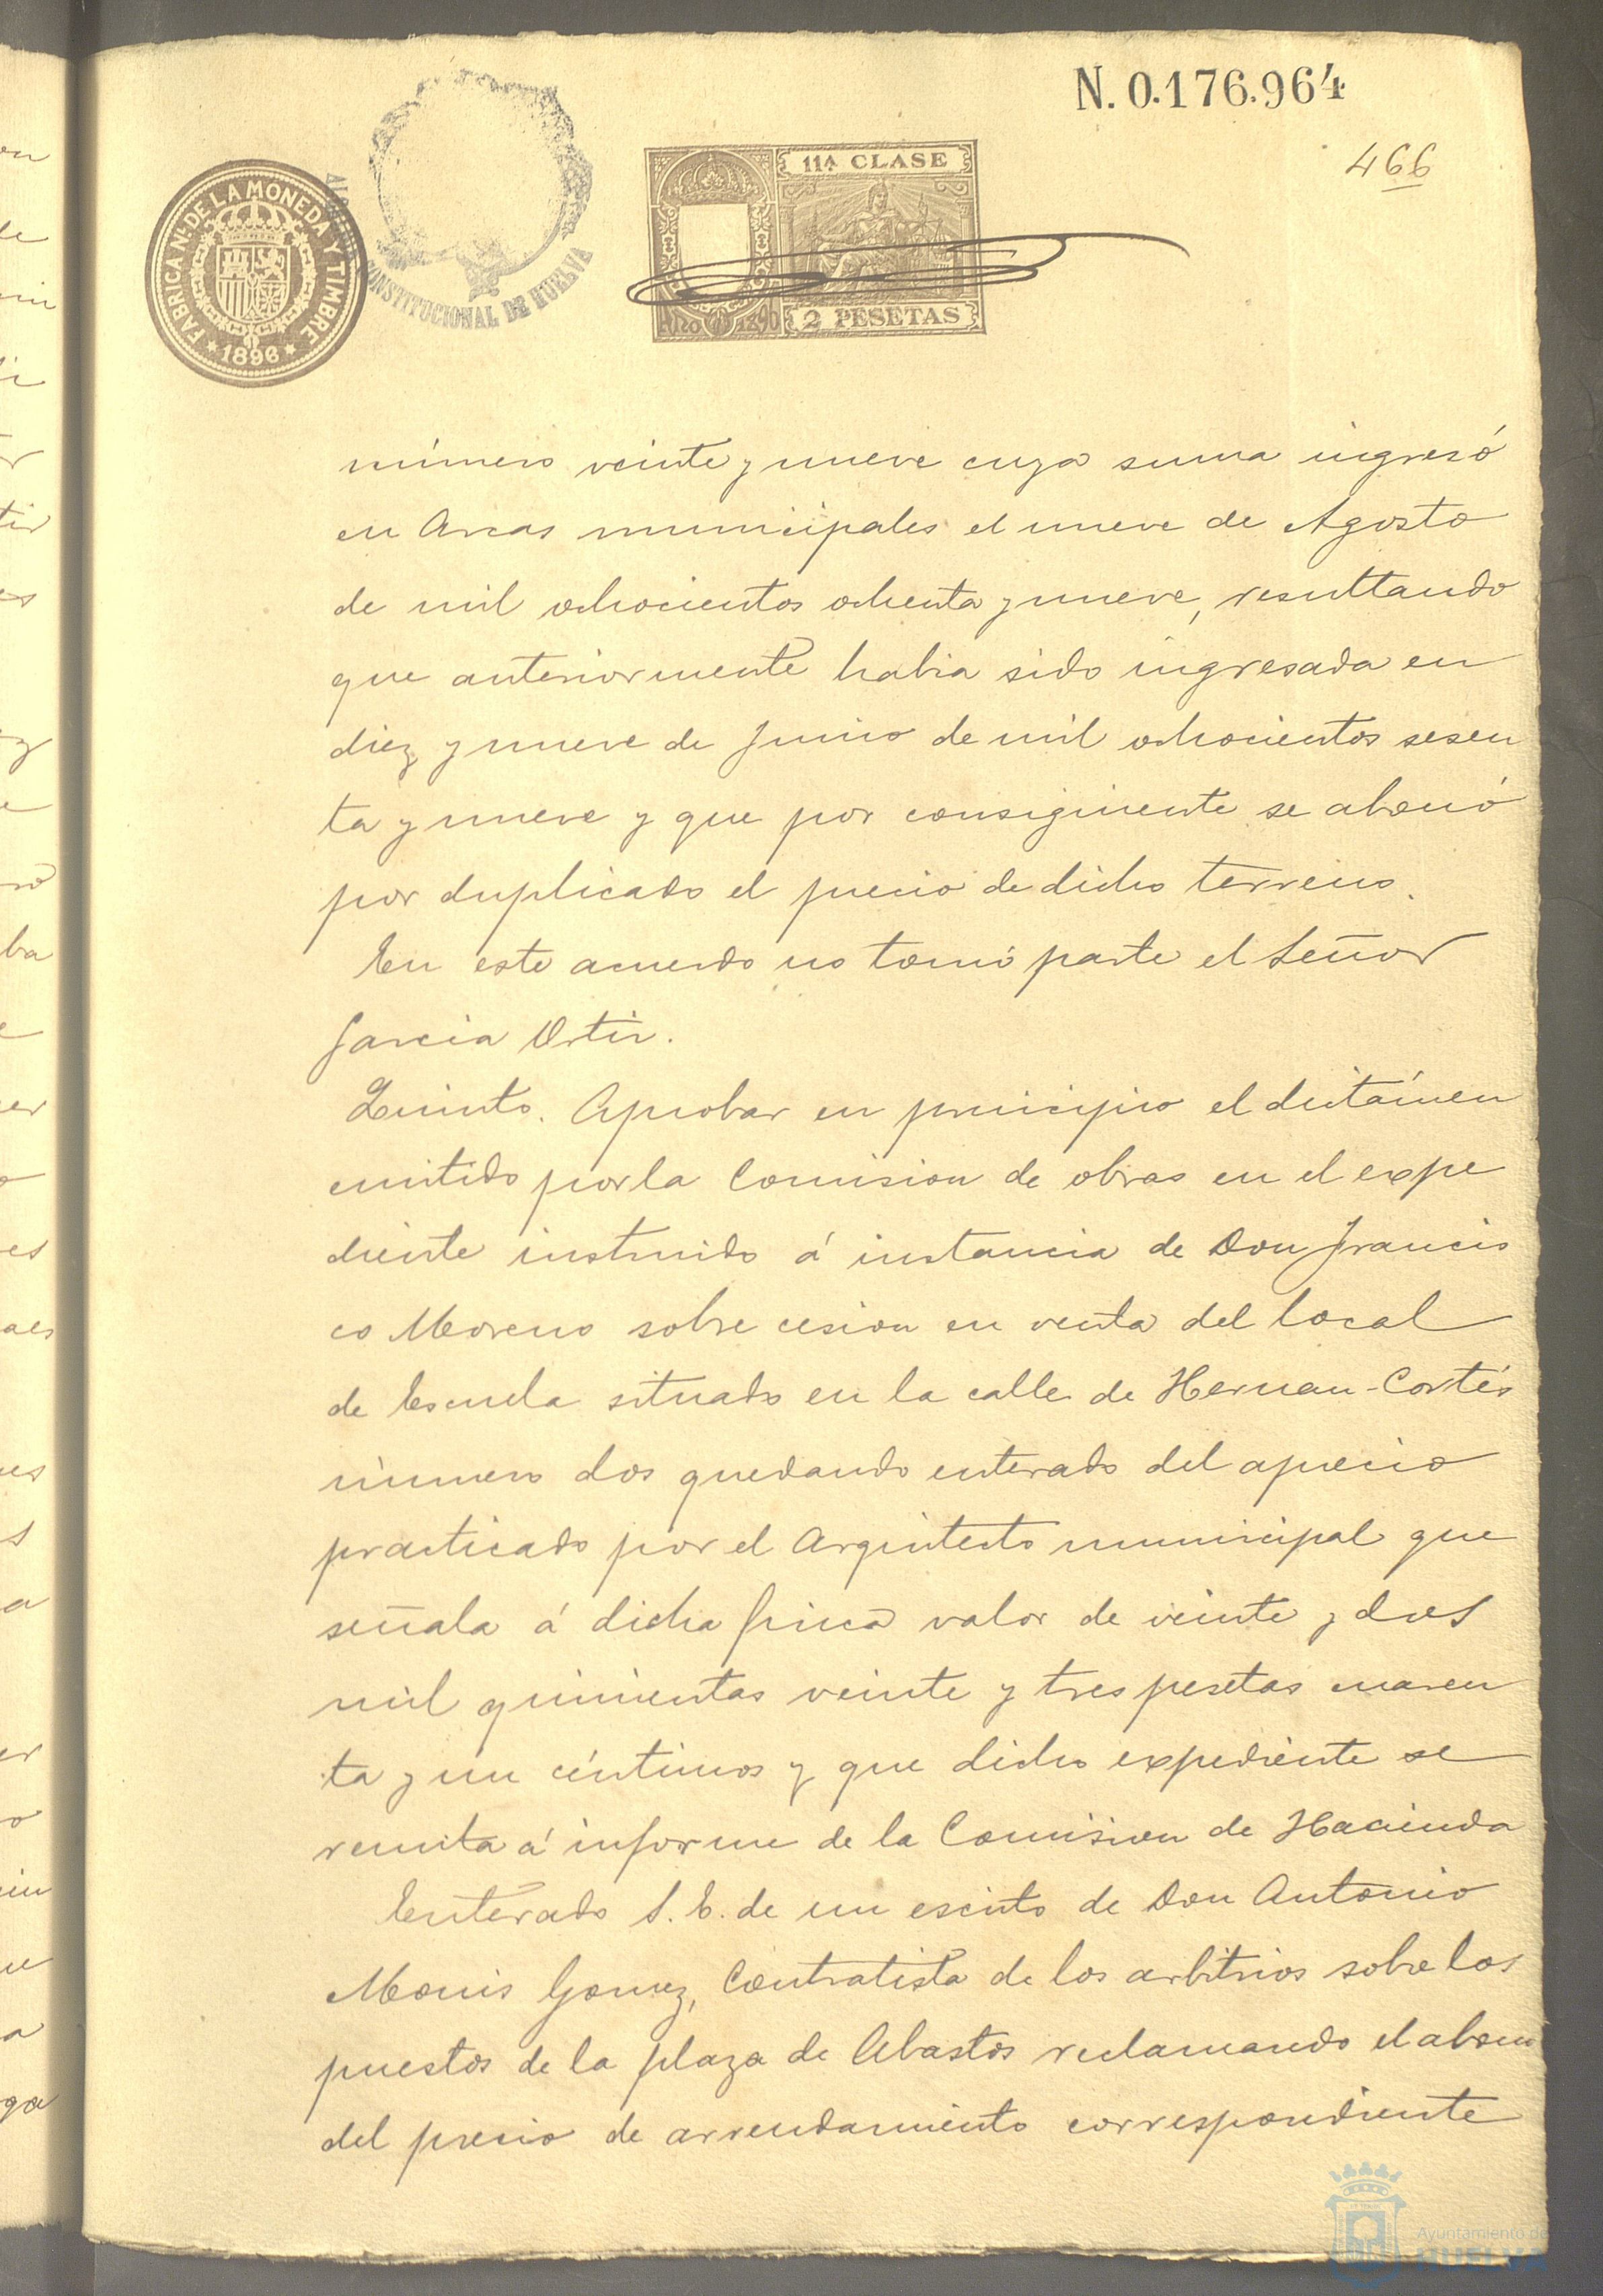 N. 0.176.964
466
11ª CLASE
FABRICA Nˡ DE LA MONEDA Y TIMBRE
* 1896 *
CONSTITUCIONAL DE HUELVA
AÑO 1896
2 PESETAS
número veinte y nueve cuya suma ingresó
en Arcas municipales el nueve de Agosto
de mil ochocientos ochenta y nueve, resultando
que anteriormente habia sido ingresada en
diez y nueve de Junio de mil ochocientos sesen
ta y nueve y que por consiguiente se abonó
por duplicado el precio de dicho terreno.
En este acuerdo no tomó parte el Señor
Garcia Ortiz.
Quinto. Aprobar en principio el dictámen
emitido por la Comision de obras en el expe
diente instruido á instancia de Don Francis
co Moreno sobre cesion en venta del local
de Escuela situado en la calle de Hernan-Cortés
número dos quedando enterado del aprecio
practicado por el Arquitecto municipal que
señala á dicha finca valor de veinte y dos
mil quinientas veinte y tres pesetas cuaren
ta y un céntimos y que dicho expediente se
remita á informe de la Comision de Hacienda
Enterado S. E. de un escrito de Don Antonio
Monis Gomez, Contratista de los arbitrios sobre los
puestos de la plaza de Abastos reclamando el abono
del precio de arrendamiento correspondiente
Ayuntamiento de
HUELVA